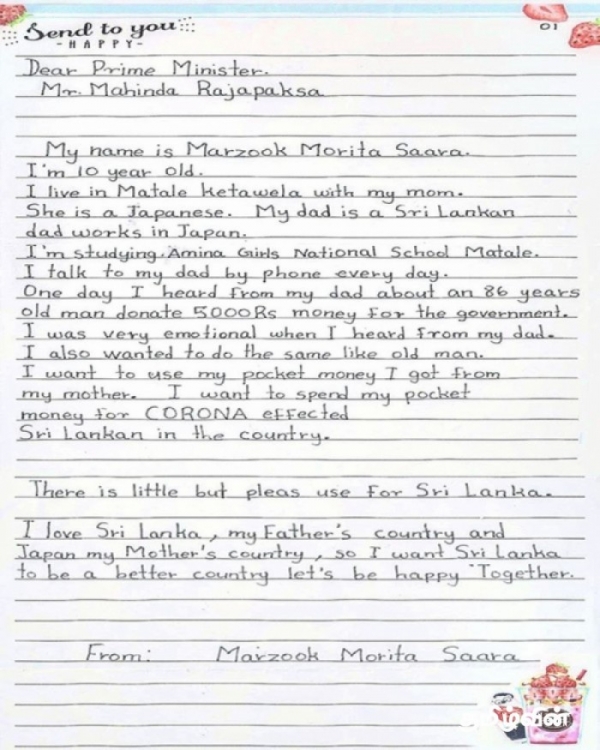 Send to you
-HAPPY-
01
Dear Prime Minister.
Mr. Mahinda Rajapaksa
My name is Marzook Morita Saara.
I'm 10 year old.
I live in Matale ketawela with my mom.
She is a Japanese. My dad is a Sri Lankan
dad works in Japan.
I'm studying.Amina Girls National School Matale.
I talk to my dad by phone every day.
One day I heard from my dad about an 86 years
old man donate 5000Rs money for the government.
I was very emotional when I heard from my dad.
I also wanted to do the same like old man.
I want to use my pocket money I got from
my mother. I want to spend my pocket
money for CORONA effected
Sri Lankan in the country.
There is little but pleas use for Sri Lanka.
I love Sri Lanka, my Father's country and
Japan my Mother's country, so I want Sri Lanka
to be a better country let's be happy Together.
From: Marzook Morita Saara
தமிழ்வின்